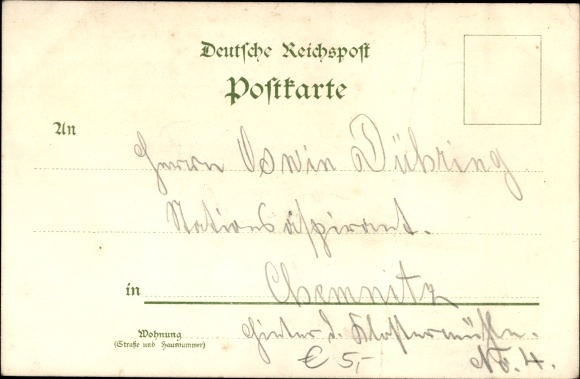 Deutsche Reichspost
Postkarte
An
Herrn Oswin Dühring
Stationsaspirant.
in Chemnitz
Wohnung
(Straße und Hausnummer)
Hinter d. Klostermühle.
No. 4.
€ 5,-